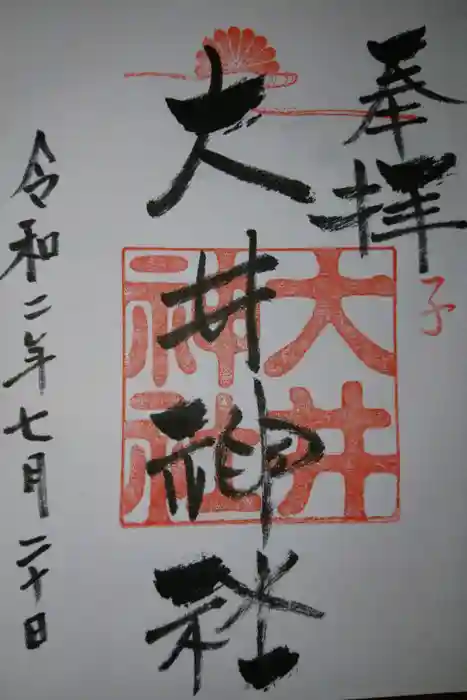 奉拝
子
大井神社
大井
神社
令和二年七月二十日